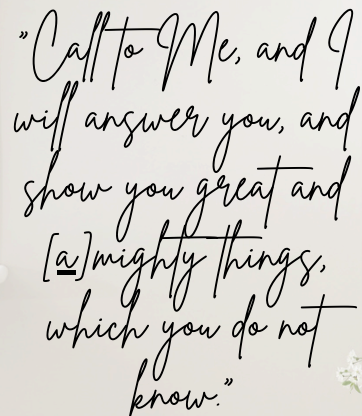 "Call to Me, and I
will answer you, and
show you great and
[a]mighty things,
which you do not
know."